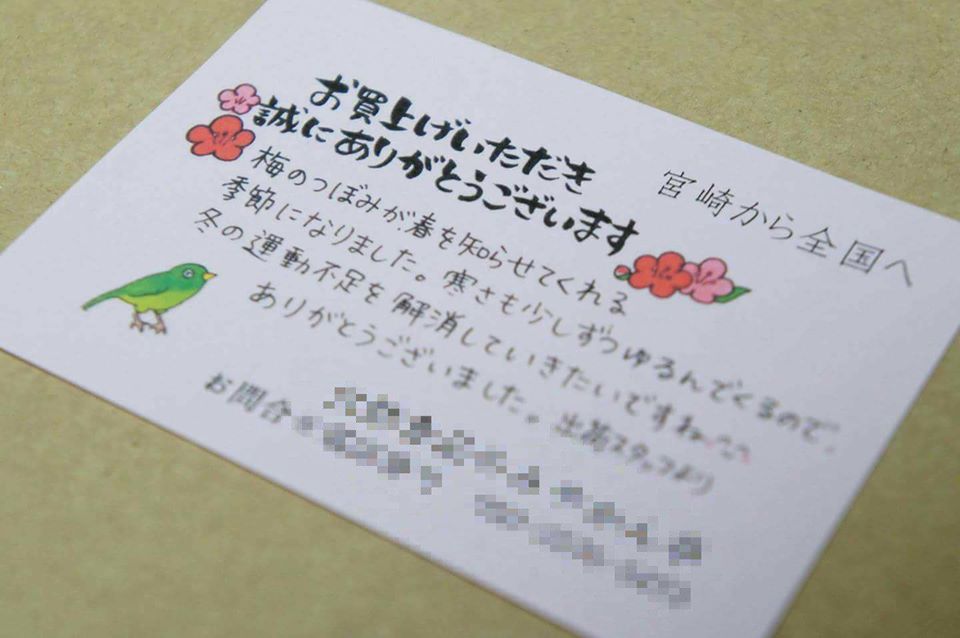 宮崎から全国へ
お買上げいただき
誠にありがとうございます
梅のつぼみが、春を知らせてくれる
季節になりました。寒さも少しずつゆるんでくるので、
冬の運動不足を解消していきたいですね
ありがとうございました。 出荷スタッフより
お問合せ